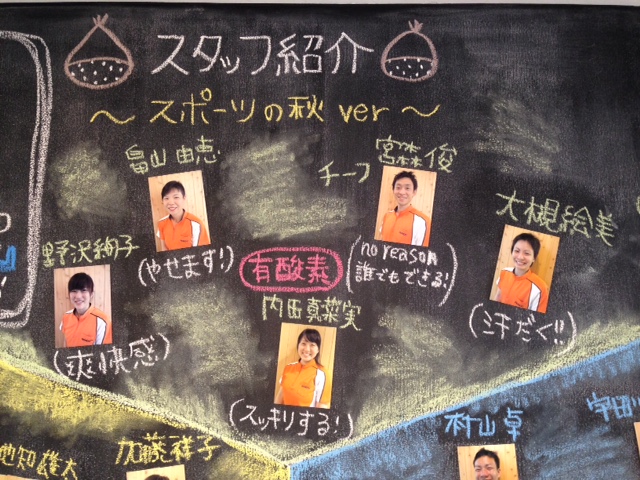 スタッフ紹介
～ スポーツの秋 ver ～
畠山由恵
チーフ 宮森俊
大槻絵美
野沢絢子
(やせます!)
(no reason
誰でもできる!)
有酸素
(汗だく!!)
(爽快感)
内田真菜実
(スッキリする!)
池知雄太
加藤祥子
村山卓
宇田